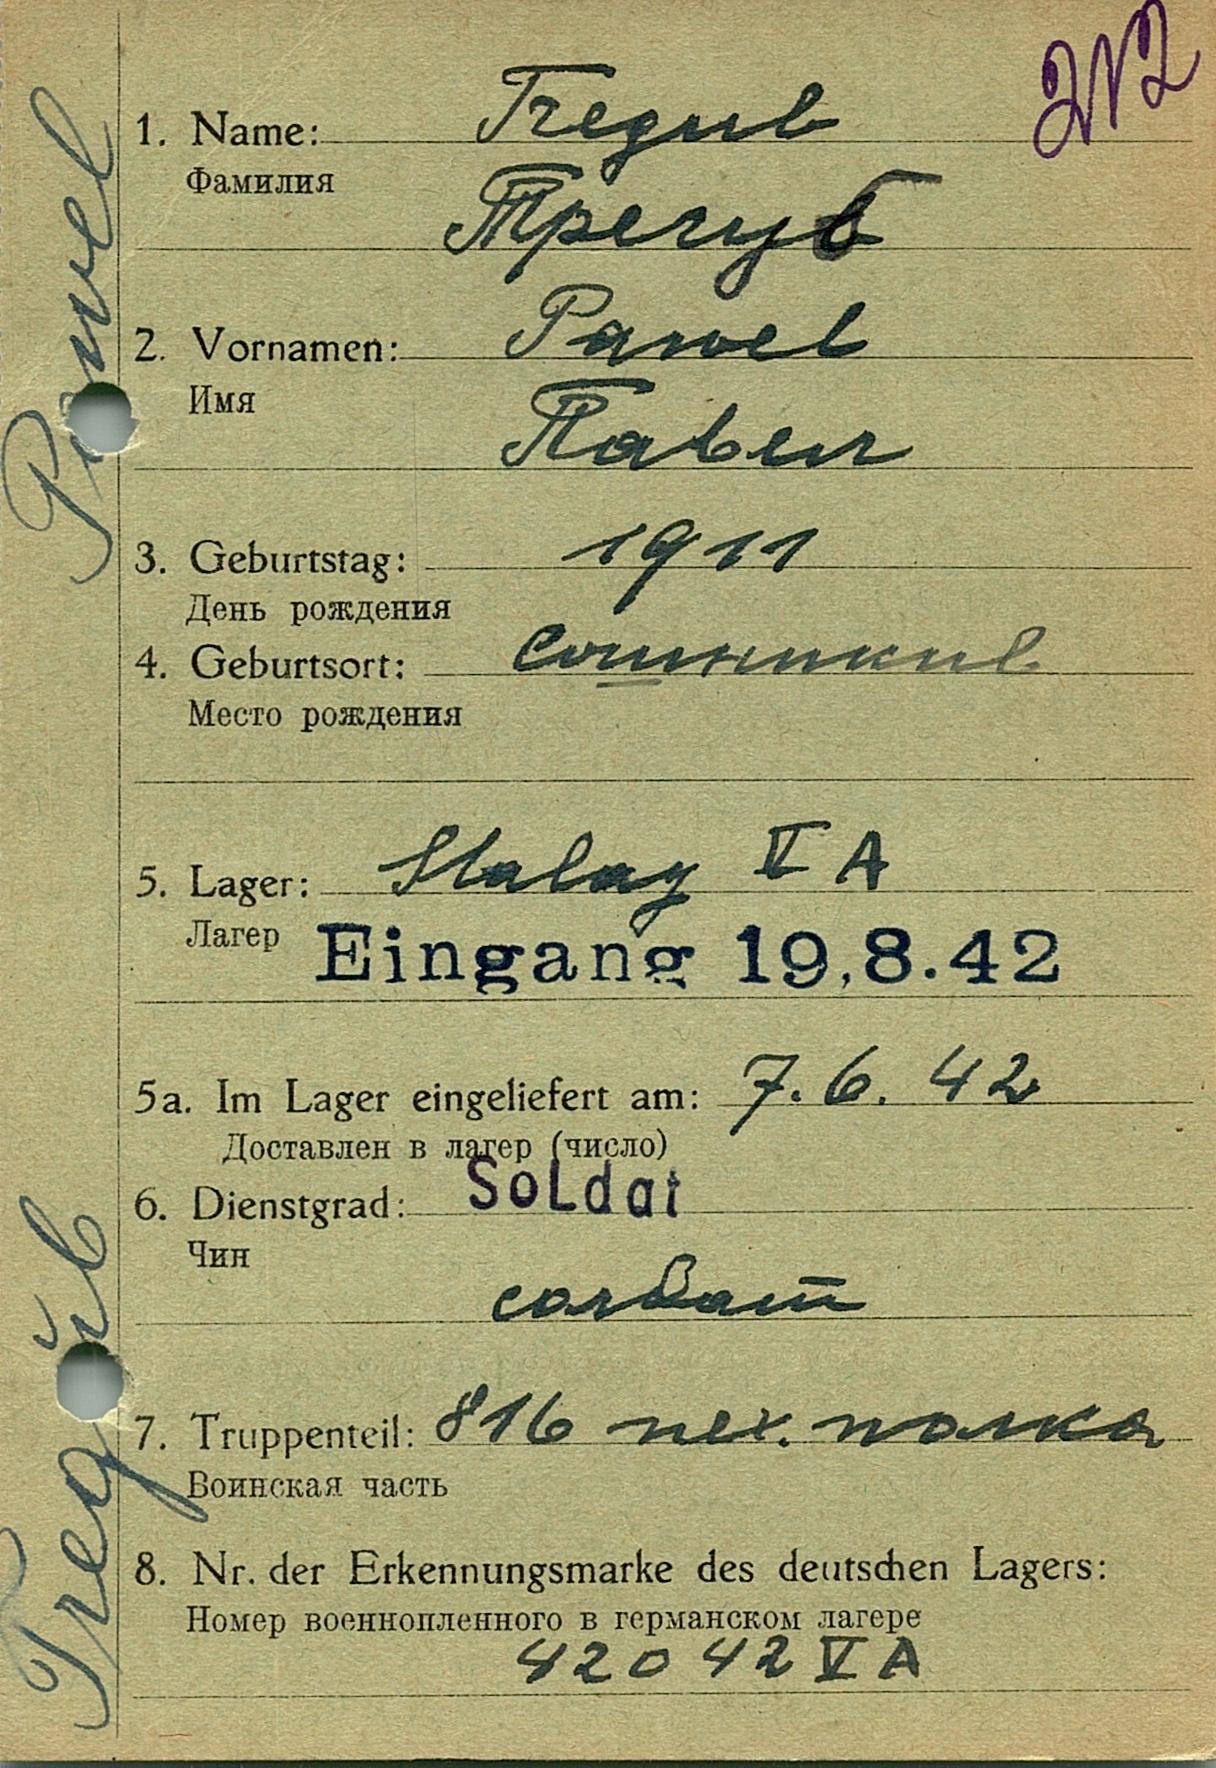 212
1. Name: Tregub
Фамилия
Трегуб
2. Vornamen: Pawel
Имя
Павел
3. Geburtstag: 1911
День рождения
4. Geburtsort:
Место рождения
5. Lager: Stalag V A
Лагер
Eingang 19.8.42
5a. Im Lager eingeliefert am: 7.6.42
Доставлен в лагер (число)
6. Dienstgrad: Soldat
Чин
солдат
7. Truppenteil: 816 пех. полка
Воинская часть
8. Nr. der Erkennungsmarke des deutschen Lagers:
Номер военнопленного в германском лагере
42042 V A
Tregub Pawel